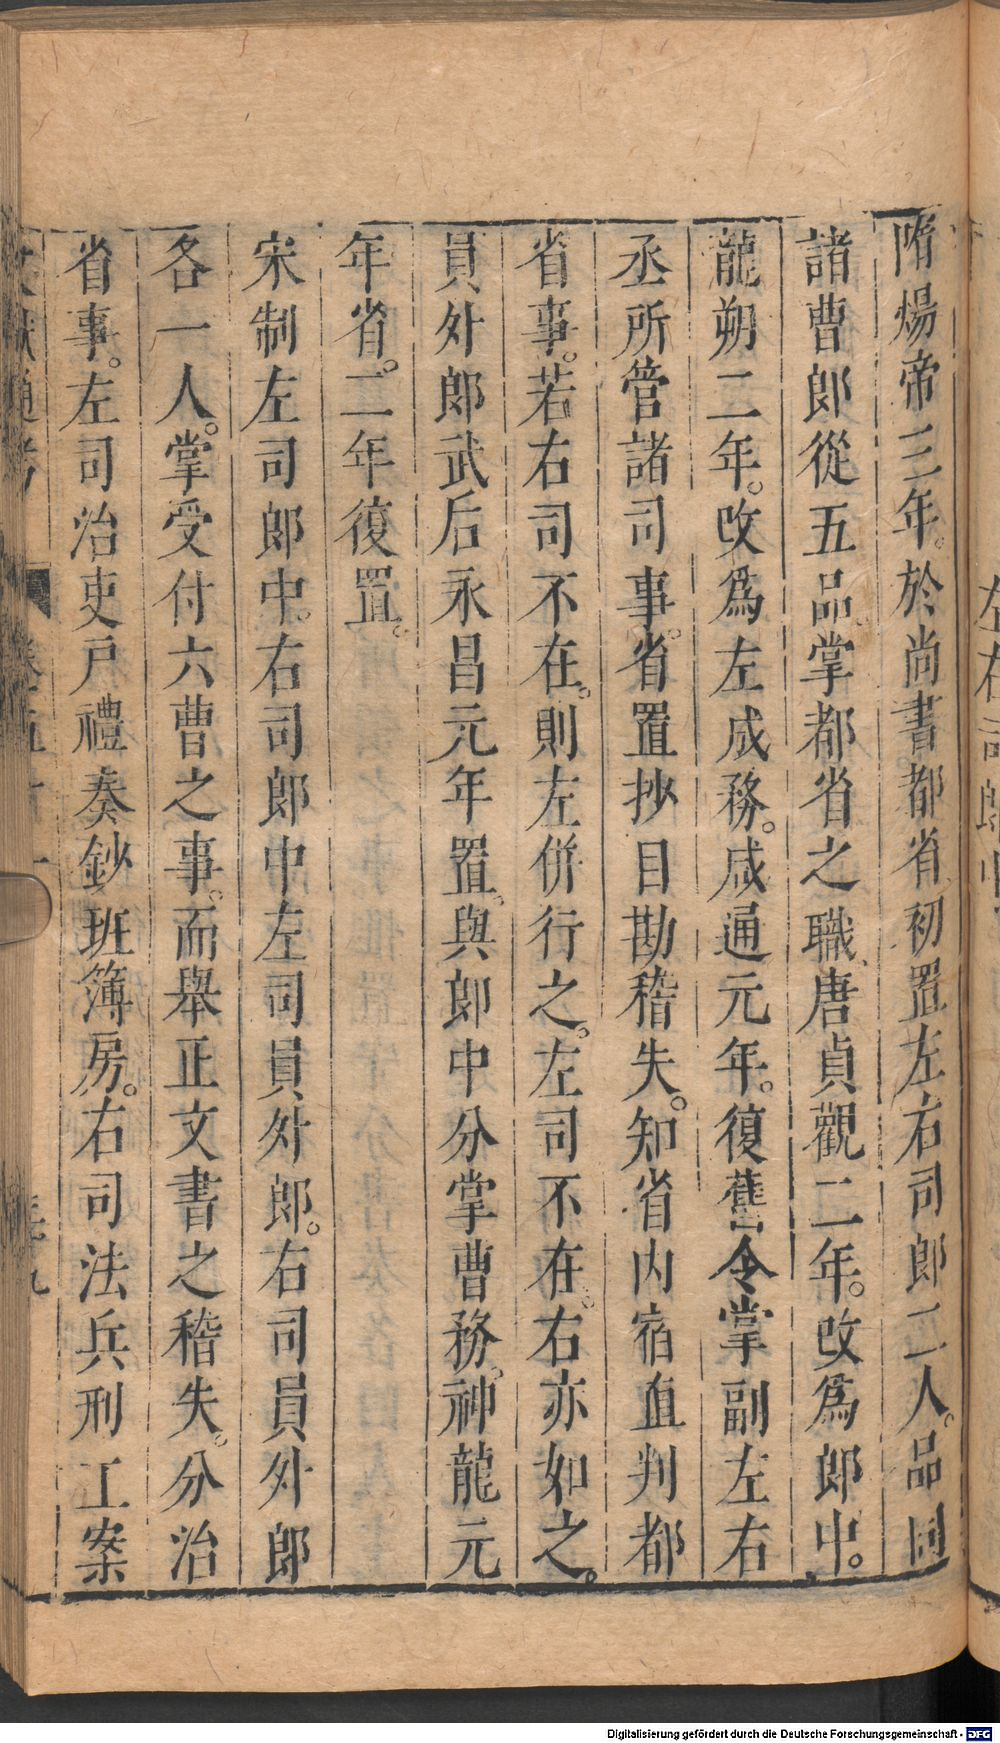 隋煬帝三年。於尚書都省初置左右司郎二人。品同
諸曹郎從五品。掌都省之職。唐貞觀二年。改爲郎中。
龍朔二年。改爲左咸務。咸通元年。復舊令掌副左右
丞所管諸司事。省置抄目勘稽失。知省內宿直判都
省事。若右司不在。則左併行之。左司不在。右亦如之。
員外郎武后永昌元年置。與郎中分掌曹務。神龍元
年省。二年復置。
宋制左司郎中。右司郎中左司員外郎。右司員外郎
各一人。掌受付六曹之事。而舉正文書之稽失。分治
省事。左司治吏戶禮奏鈔班簿房。右司法兵刑工案
通考
Digitalisierung gefördert durch die Deutsche Forschungsgemeinschaft - DFG